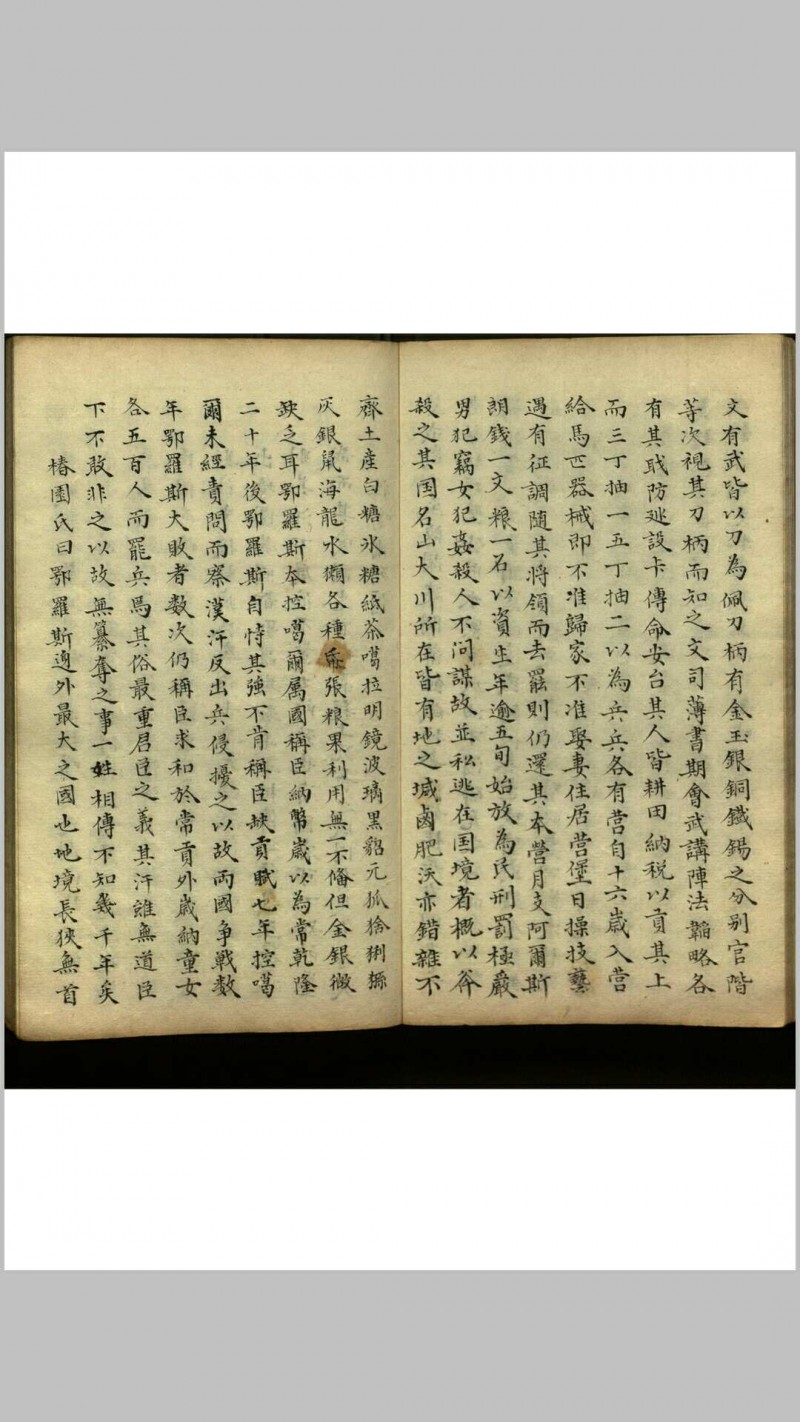 文有武皆以刀為佩刀柄有金玉銀銅鐵錫之分别官階
等次視其刀柄而知之文司薄書期會武講陣法韜略各
有其戢防延設卡傳命安台其人皆耕田納税以貢其上
而三丁抽一五丁抽二以為兵兵各有营自十六歲入营
給馬匹器械即不准歸家不准娶妻住居营堡日操技藝
遇有征調隨其将領而去罷則仍還其本营月支阿爾斯
朗錢一文粮一石以資生年逾五旬始放為民刑罰極嚴
男犯竊女犯姦殺人不問謀故並私逃在国境者概以斧
殺之其国名山大川所在皆有地之堿鹵肥沃亦錯雜不
齊土産白糖氷糖紙茶噶拉明鏡波璃黑貂元狐猞猁猻
灰銀鼠海龍水獺各種張粮果利用無一不俻但金銀微
缺乏耳鄂羅斯本控噶爾属國稱臣納幣歲以為常乾隆
二十年後鄂羅斯自恃其強不肯稱臣缺貢賦七年控噶
爾未經責問而察漢汗反出兵侵擾之以故両國争戰数
年鄂羅斯大敗者数次仍稱臣求和於常貢外歲納童女
各五百人而罷兵馬其俗最重君臣之義其汗雖無道臣
下不敢非之以故無纂奪之事一姓相傳不知幾千年矣
椿園氏曰鄂羅斯邉外最大之國也地境長狹無首